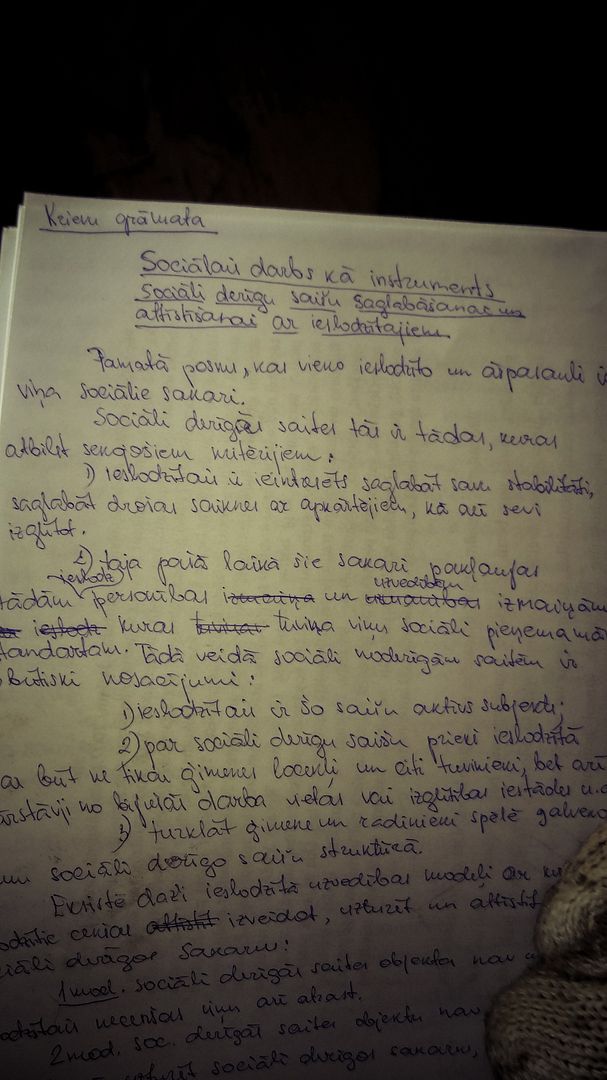 Krievu grāmata
Sociālais darbs kā instruments
Sociāli derīgu saišu saglabāšanas un
attīstīšanai ar ieslodzītajiem
Pamatā posms, kas vieno ieslodzīto un ārpasauli ir
viņa sociālie sakari.
Sociāli derīgās saites tās ir tādas, kuras
atbilst sekojošiem kritērijiem:
1) ieslodzītais ir ieinteresēts saglabāt savu stabilitāti,
saglabāt drošas saiknes ar apkārtējiem, kā arī sevi
izglītot.
2) tajā pašā laikā šie sakari pakļaujas
ieslodz uzvedības
tādām personības un izmaiņām
kuras tuvina viņu sociāli pieņemamā
standartam. Tādā veidā sociāli noderīgām saitēm ir
būtiski nosacījumi:
1) ieslodzītais ir šo saišu aktīvs subjekts;
2) par sociāli derīgu saišu ieslodzītā
var būt ne tikai ģimenes locekļi un citi tuvinieki, bet arī
pārstāvji no darba vietas vai izglītības iestādes u.c.
3) turklāt ģimene un radinieki spēlē galveno
sociāli derīgo saišu struktūrā.
Eksistē daži ieslodzītā uzvedības modeļi ar
cenšas attīstīt izveidot, uzturēt un attīstīt
sociāli derīgos sakarus:
1 mod. sociāli derīgās saites objekts nav
necenšas viņu arī atrast.
2 mod. soc. derīgās saites objekts nav
uzturēt sociāli derīgos sakarus,